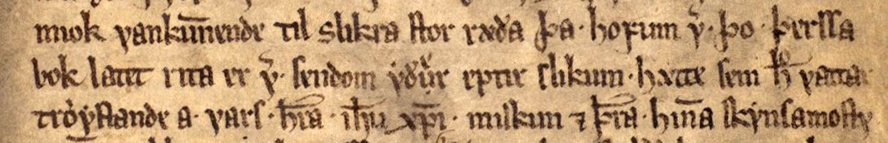 miok vankun̅ende til slikra stor ræða þa· hofum v́· þo· þerssa
bok latit rita er v́· sendom yðr eptir slikum· hætte sem h̅
trőystande a· vars· h̅ra· ih̅u xp̅i· miskun ⁊ þ̅ra· hin̅a skynsamosto